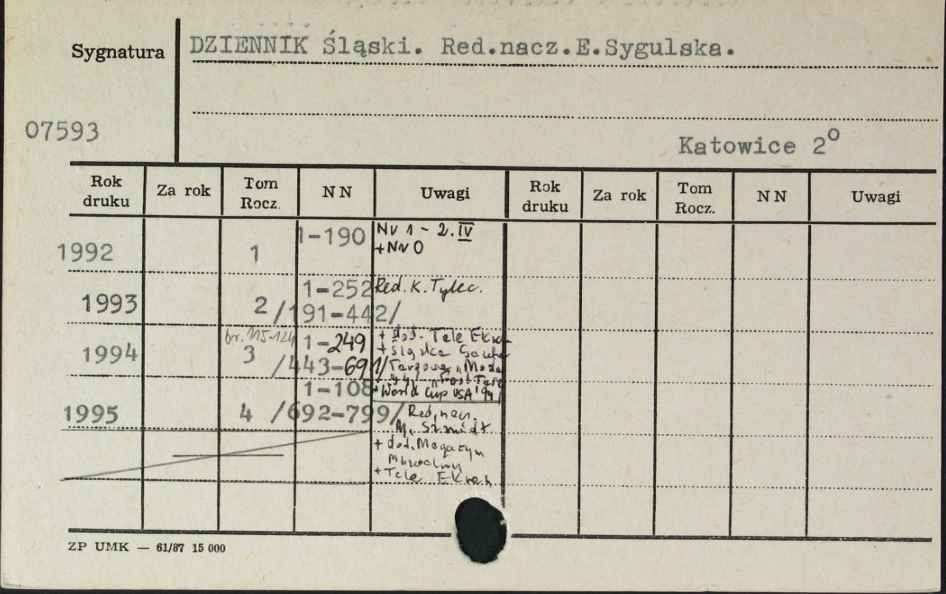 Sygnatura
DZIENNIK Śląski. Red.nacz.E.Sygulska.
07593
Katowice 2°
Rok druku Za rok Tom Rocz. NN Uwagi Rok druku Za rok Tom Rocz. NN Uwagi
1992 1 1-190 Nr 1 - 2.IV
+Nr 0
1993 2 1-252 Red. K. Tylec.
/191-442/
br. 115-124
1994 3 1-249 + dod. Tele Ekran
+ Śląska
/443-691/
"Fast Taro
1-108 + World Cup USA '94
1995 4 /692-799/ Red. nacz.
M. Szmidt
+ dod. Magazyn
+ Tele Ekran
ZP UMK — 61/87 15 000